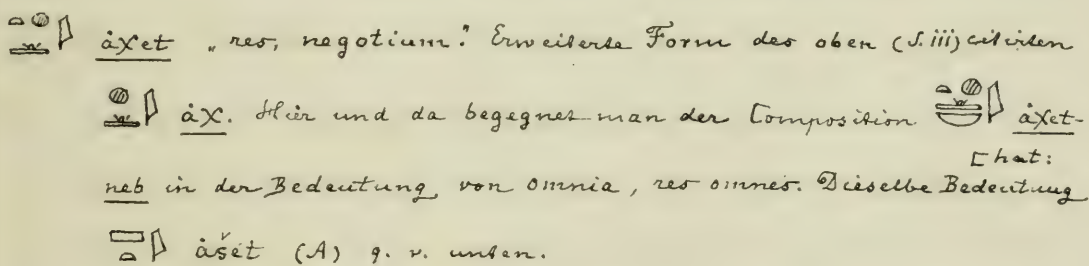 ȧχet „res, negotium". Erweiterte Form des oben (S. iii) citirten
ȧχ. Hier und da begegnet man der Composition ȧχet-
[hat:
neb in der Bedeutung von omnia, res omnes. Dieselbe Bedeutung
ȧšet (A) q. v. unten.